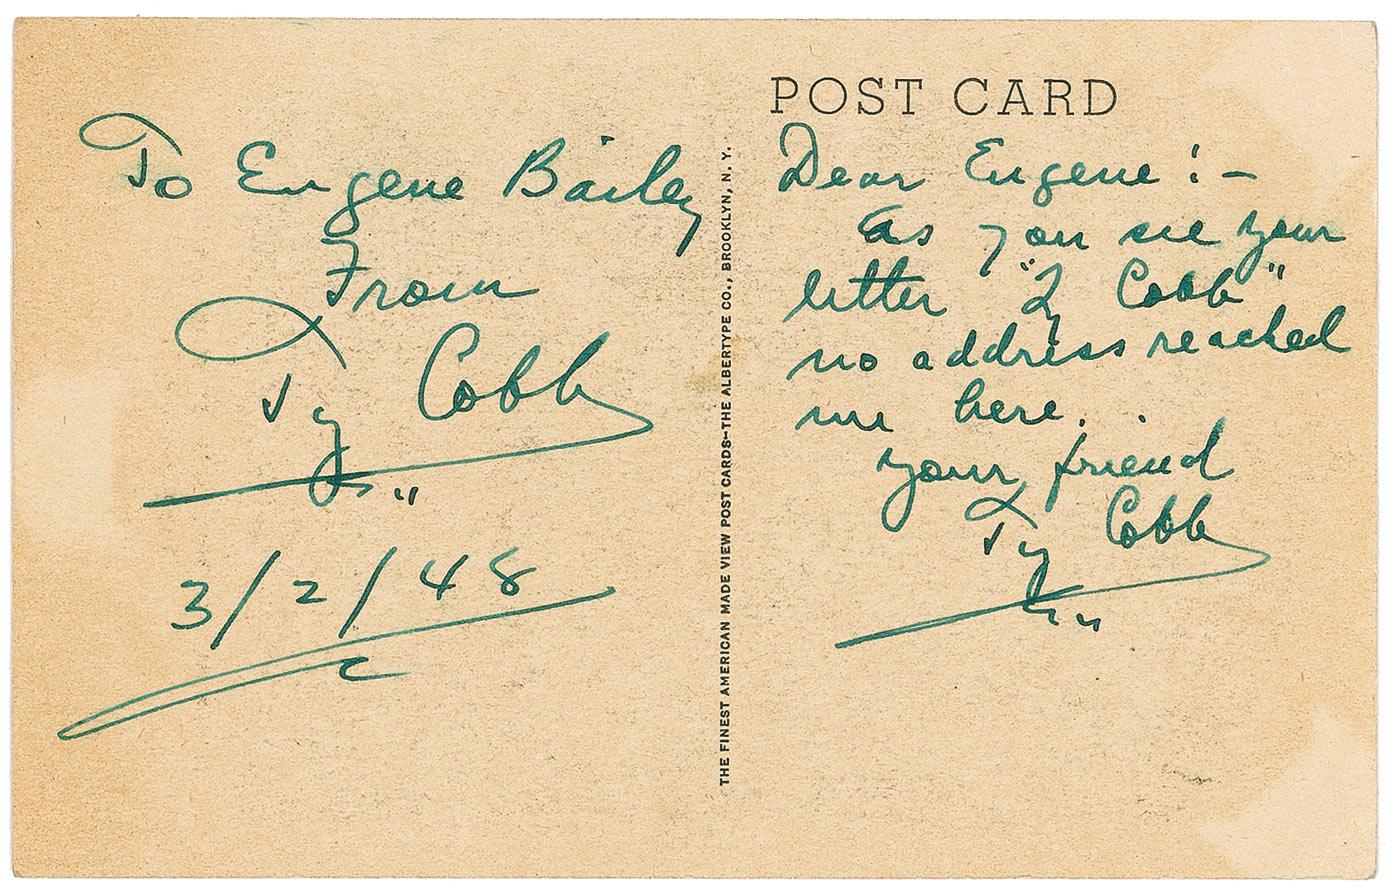 To Eugene Bailey
From
Ty Cobb
3/2/48
THE FINEST AMERICAN MADE VIEW POST CARDS—THE ALBERTYPE CO., BROOKLYN, N. Y.
POST CARD
Dear Eugene:-
as you see your
letter "Ty Cobb"
no address reached
me here.
your friend
Ty Cobb